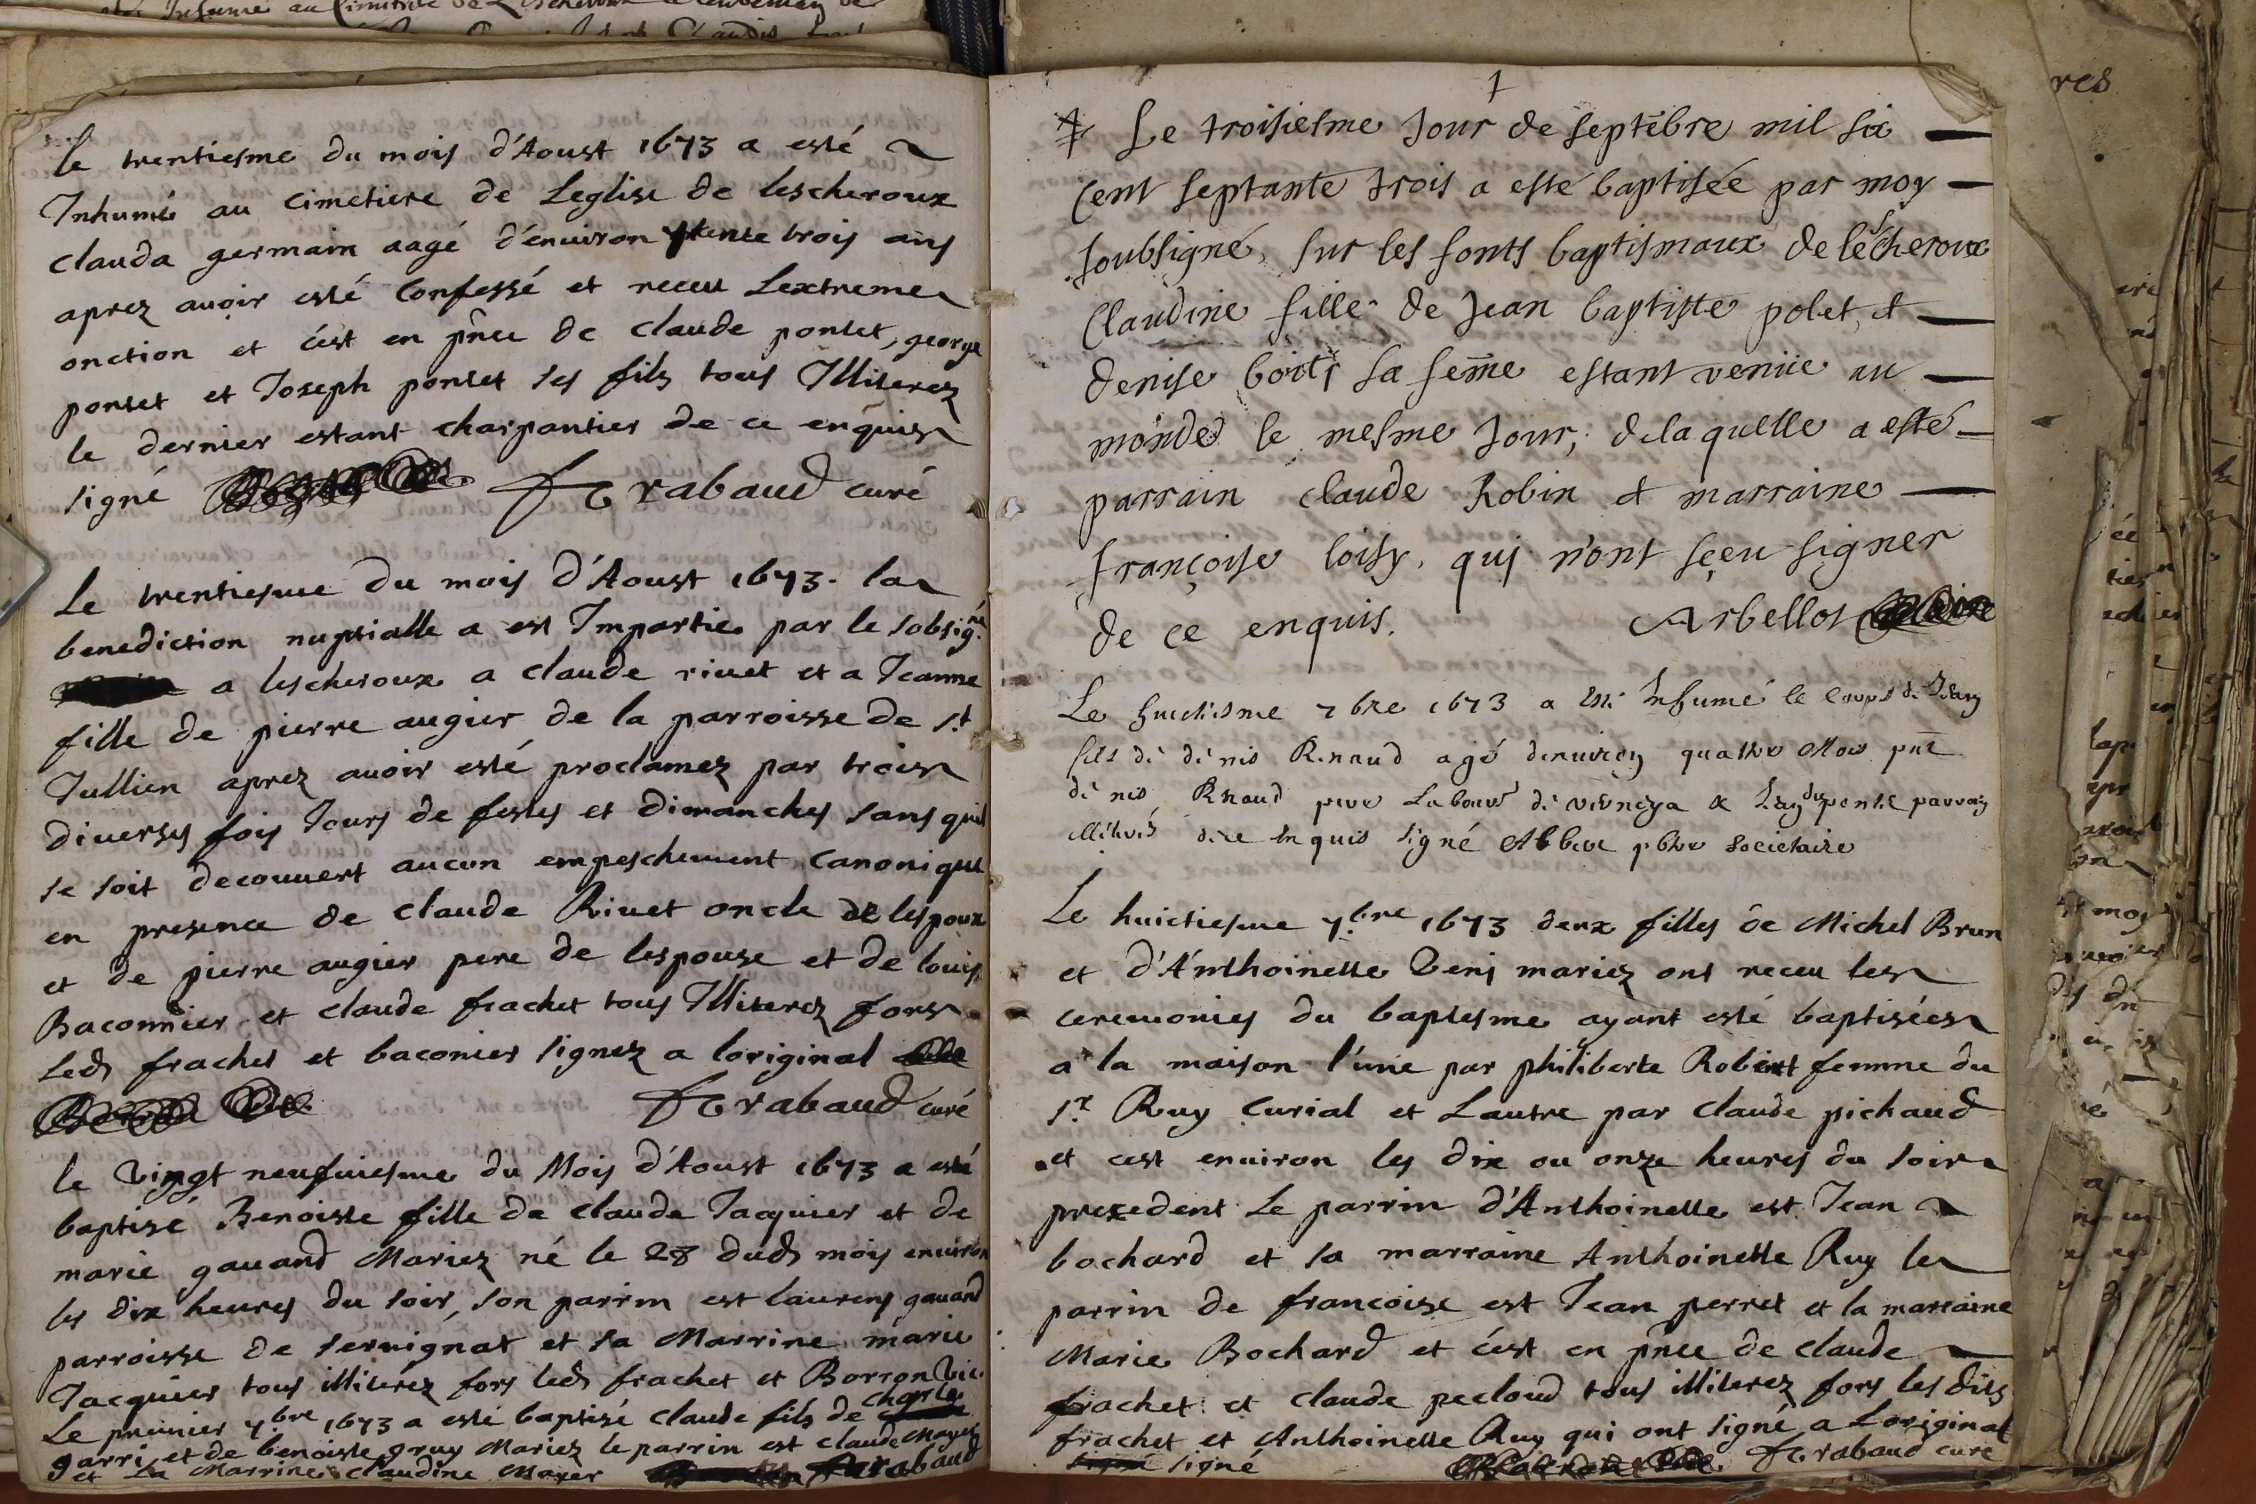 Le trentiesme du mois d'Aoust 1673 a esté
Inhumé au cimetiere de Leglise de lescheroux
clauda germain aagé d'enuiron trois ans
aprez auoir esté Confessé et receu Lextreme
onction et c'est en pñce de claude pontet, george
pontet et Joseph pontet ses filz tous Illiterez
le dernier estant charpantier de ce enquis
signé rabaud curé
Le trentiesme du mois d'Aoust 1673. la
benediction nuptialle a est Impartie par le sobsigné
a lescheroux a claude riuet et a Jeanne
fille de pierre augier de la parroisse de st
Jullien aprez auoir esté proclamez par trois
diuerses fois Jours de festes et dimanches sans quil
se soit decouuert aucun empeschement Canonique
en presence de claude Riuet oncle de lespoux
et de pierre augier pere de lespouse et de louis
Baconnier et claude frachet tous Illiterez fors
led frachet et baconier signez a loriginal
rabaud curé
le vingt neufuiesme du Mois d'Aoust 1673 a esté
baptisé Benoiste fille de claude Jacquier et de
marie gauand Mariez né le 28 dud mois enuiron
les dix heures du soir, son parrin est laurens gauand
parroisse de seruignat et sa Marrine marie
Jacquier tous illiterez fors led frachet et Borron vic.
Le premier 7.bre 1673 a esté baptisé claude fils de charle
garri et de benoiste gruy Mariez le parrin est claude Mayer
et La Marrine claudine Mayer rabaud
1
Le troisiesme Jour de septẽbre mil six
cent septante trois a esté baptisée par moy
soubsigné, sur les fonts baptismaux de lescheroux
Claudine fille de Jean baptiste polet, et
denise sa fem̃e estant venüe au
monde le mesme Jour; de laquelle a esté
parrain claude Robin et marraine
françoise loisy, qui n'ont sçeu signer
de ce enquis. Arbellot
Le huictiesme 7bre 1673 a esté Inhumé le corps de Jean
fils de denis Renaud agé denuiron quattre Mois pñt
denis Renaud pere Laboure de &
illiterés de ce enquis signé pbre societaire
Le huictiesme 7.bre 1673 deux filles de Michel Brun
et d'Anthoinette mariez ont receu les
ceremonies du baptesme ayant esté baptisées
a la maison l'une par philiberte Robert femme du
sr. Ruy Curial et Lautre par claude pichaud
et cest enuiron les dix ou onze heures du soir
precedent Le parrin d'Anthoinette est Jean
bochard et sa marraine Anthoinette Ruy le
parrin de francoise est Jean perret et la marraine
Marie Bochard et c'est en pñce de claude
frachet et claude pecloud tous illiterez fors les dits
frachet et Anthoinette Ruy qui ont signé a Loriginal
signé rabaud curé